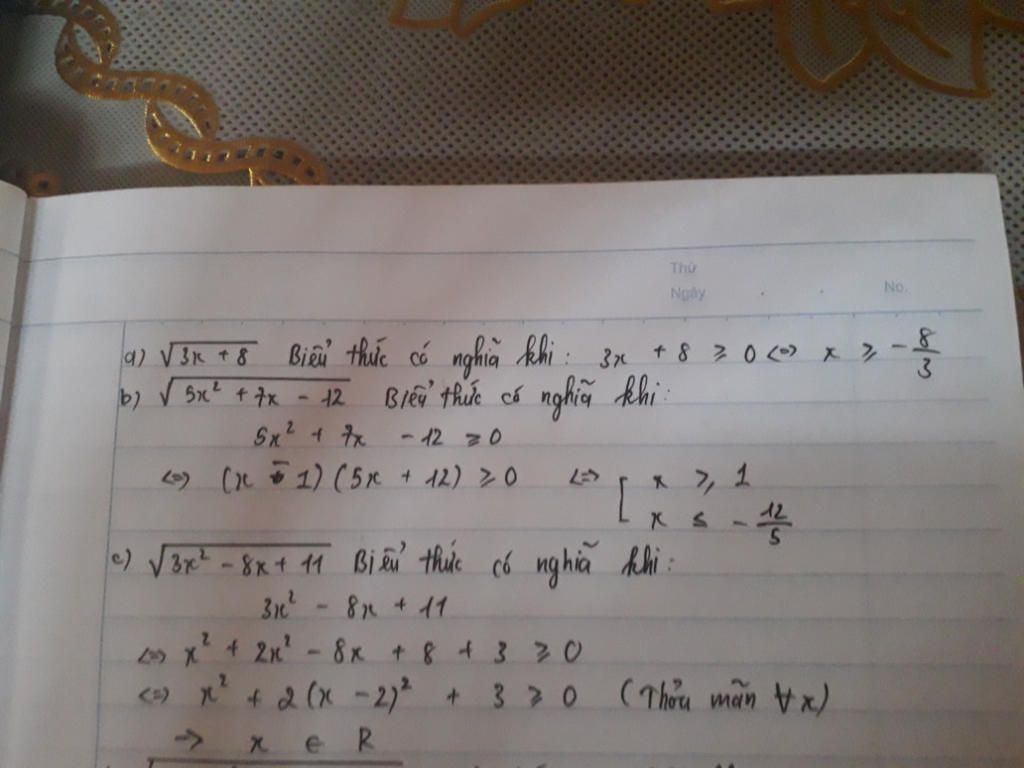 Thứ
Ngày No.
a) √(3x + 8) Biểu thức có nghĩa khi: 3x + 8 ≥ 0 <=> x ≥ -8/3
b) √(5x² + 7x - 12) Biểu thức có nghĩa khi:
5x² + 7x - 12 ≥ 0
<=> (x - 1)(5x + 12) ≥ 0 <=> [ x ≥ 1
x ≤ -12/5
c) √(3x² - 8x + 11) Biểu thức có nghĩa khi:
3x² - 8x + 11
<=> x² + 2x² - 8x + 8 + 3 ≥ 0
<=> x² + 2(x - 2)² + 3 ≥ 0 (Thỏa mãn ∀x)
-> x ∈ R